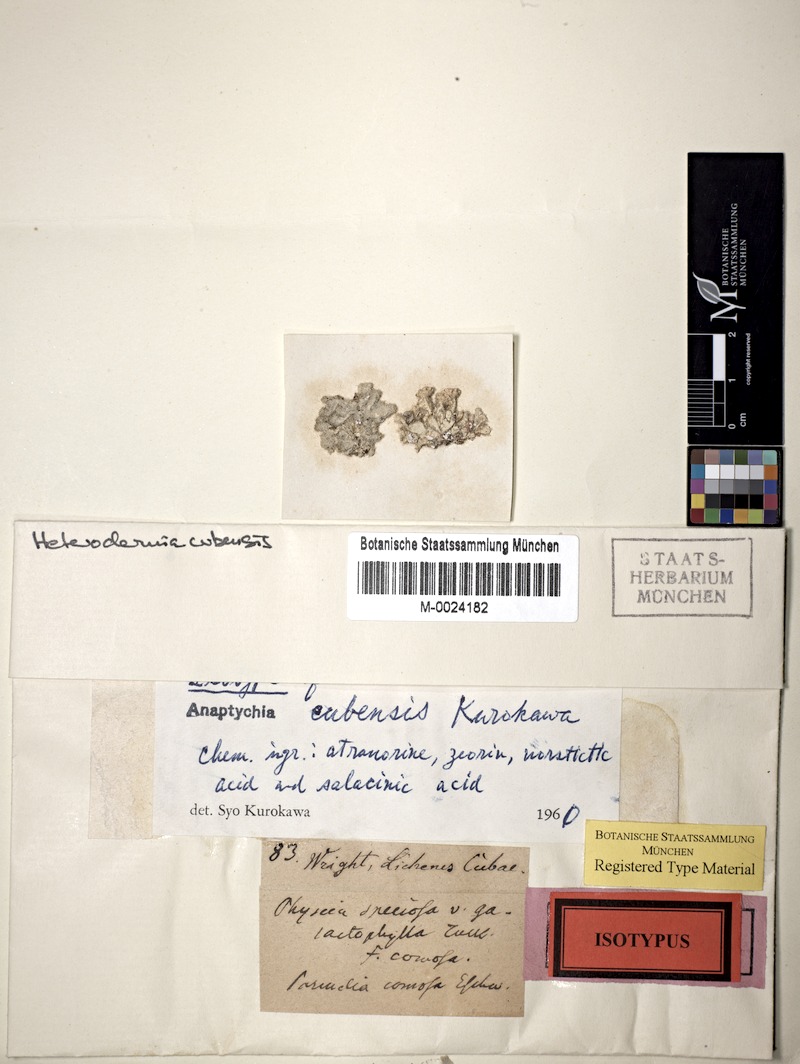 BOTANISCHE
STAATSSAMMLUNG
MÜNCHEN
M
0 1 2
cm
copyright reserved
Heterodermia cubensis
Botanische Staatssammlung München
M-0024182
STAATS-
HERBARIUM
MÜNCHEN
Anaptychia cubensis Kurokawa
Chem. ingr.: atranorine, zeorin, norstictic
acid and salacinic acid
det. Syo Kurokawa 1960
BOTANISCHE STAATSSAMMLUNG
MÜNCHEN
Registered Type Material
ISOTYPUS
83. Wright, Lichenes Cubae.
Physcia speciosa v. ga-
lactophylla Tuck.
f. comosa.
Parmelia comosa Eschw.